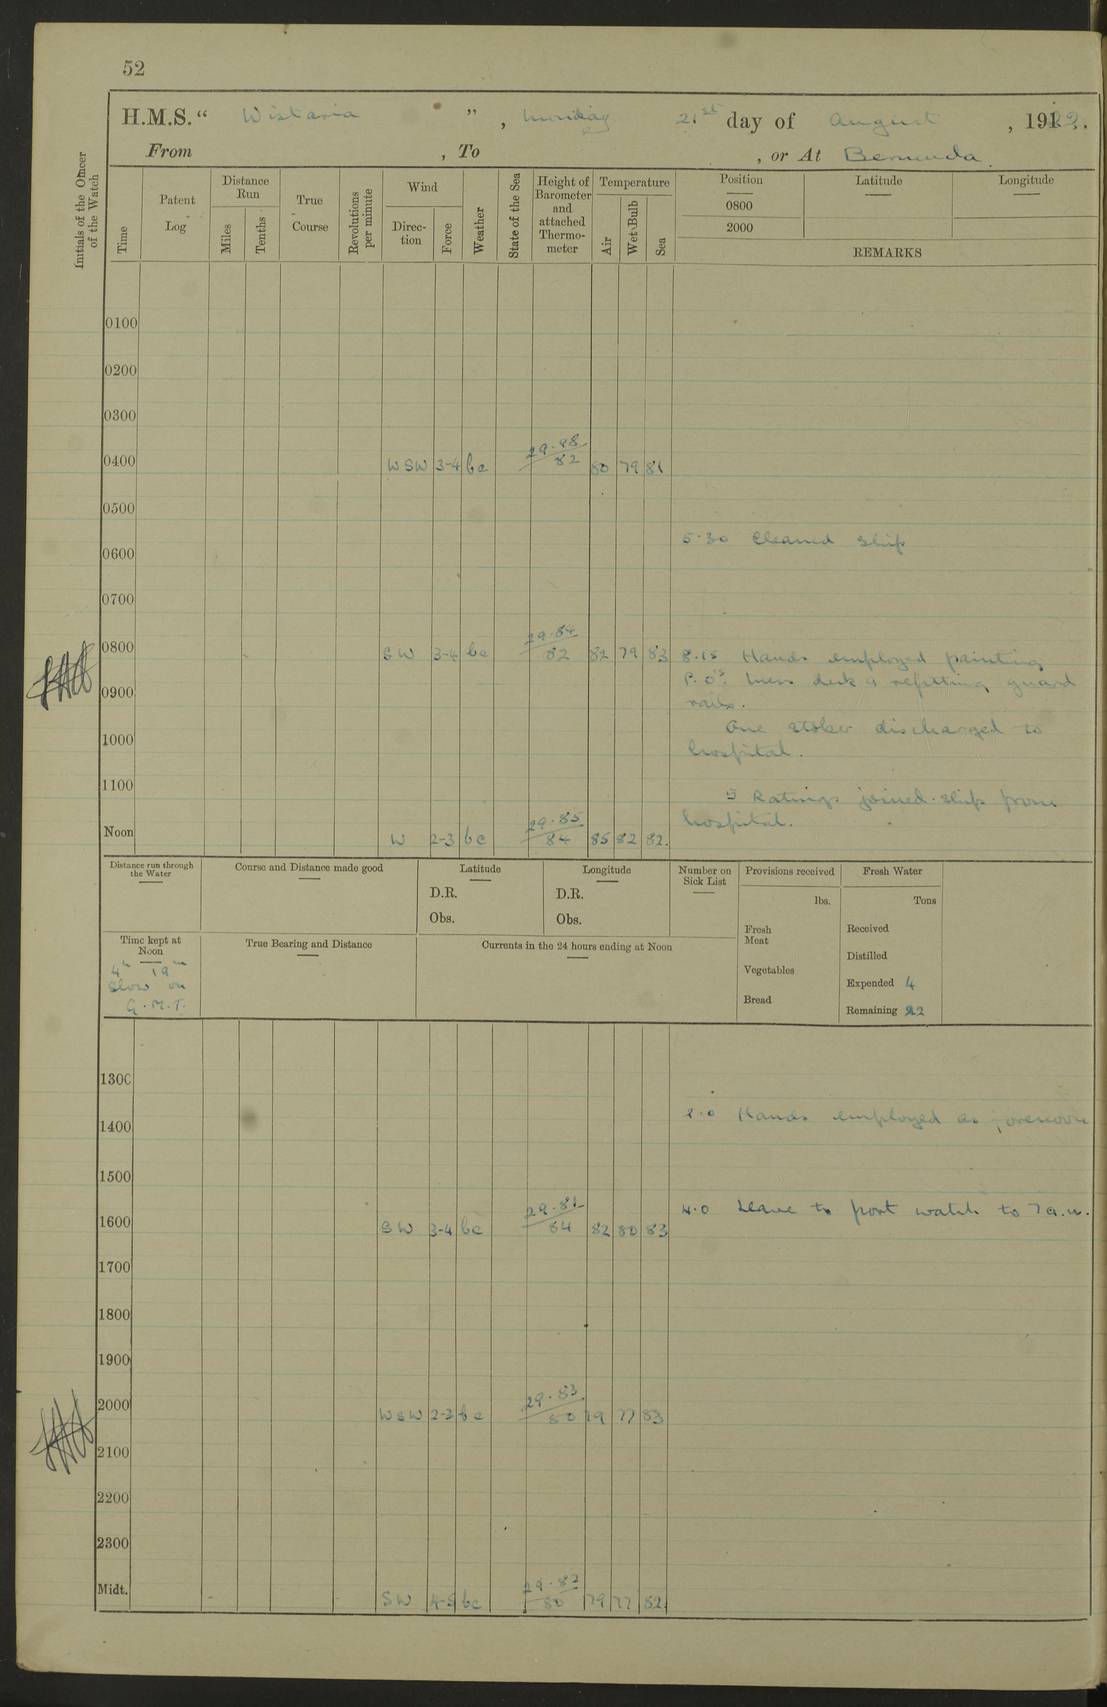 52
H.M.S. “ Wistaria ” , Monday 21st day of August , 1922.
From , To , or At Bermuda.
Initials of the Officer of the Watch
Time
Patent Log
Distance Run
Miles
Tenths
True Course
Revolutions per minute
Wind
Direc-tion
Force
Weather
State of the Sea
Height of Barometer and attached Thermo-meter
Temperature
Air
Wet Bulb
Sea
Position
0800
2000
Latitude
Longitude
REMARKS
0100
0200
0300
0400 WSW 3-4 bc 29.88/82 80 79 81
0500
5.30 Cleaned Ship
0600
0700
0800 SW 3-4 bc 29.84/82 82 79 83 8.15 Hands employed painting
P.O's. mess deck & refitting guard
0900 rails.
One stoker discharged to
1000 hospital.
1100 5 Ratings joined ship from
hospital.
Noon W 2-3 bc 29.85/84 85 82 82.
Distance run through the Water
Course and Distance made good
Latitude
D.R.
Obs.
Longitude
D.R.
Obs.
Number on Sick List
Provisions received
lbs.
Fresh Meat
Vegetables
Bread
Fresh Water
Tons
Received
Distilled
Expended 4
Remaining 22
Time kept at Noon
4h 19m
Slow on
G.M.T.
True Bearing and Distance
Currents in the 24 hours ending at Noon
1300
1400 Hands employed as forenoon
1500
1600 SW 3-4 bc 29.81/84 82 80 83 4.0 Leave to port watch to 7 a.m.
1700
1800
1900
2000 WSW 2-3 bc 29.83/80 79 77 83
2100
2200
2300
Midt. SW 4-5 bc 29.83/80 79 77 82.